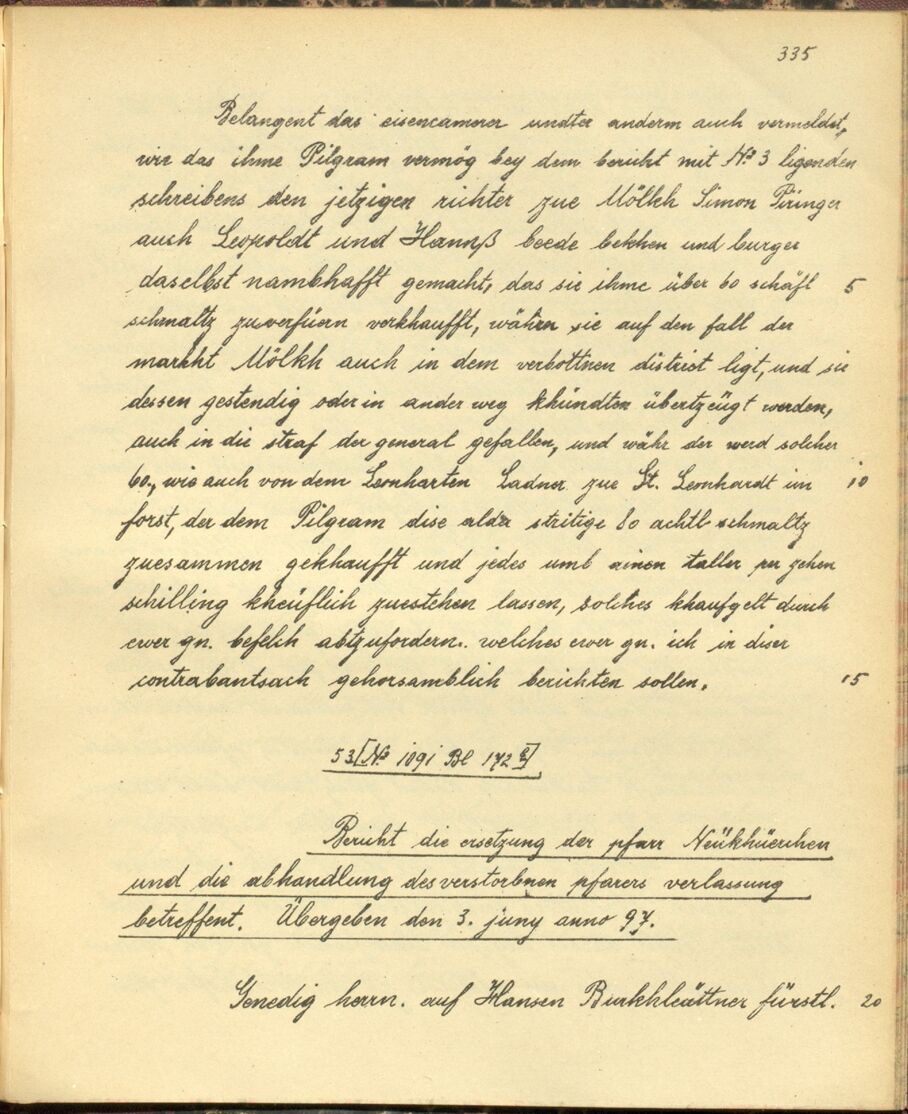 335
Belangent das eisencamerer undter anderm auch vermeldet,
wie das ihme Pilgram vermög bey dem bericht mit No 3 ligenden
schreibens den jetzigen richter zue Mölkh Simon Piringer
auch Leopoldt und Hannß beede bekhen und burger
daselbst nambhafft gemacht, das sie ihme über 60 schäfl 5
schmaltz zuverfüern verkhaufft, währn sie auf den fall der
markht Mölkh auch in dem verbottnen district ligt, und sie
dessen gestendig oder in ander weg khündten übertzeügt werden,
auch in die straf der general gefallen, und währ der werd solcher
60., wie auch von dem Leonharten Ladner zue St. Leonhardt im 10
forst, der dem Pilgram dise alda stritige 80 achtl schmaltz
zuesammen gekhaufft und jedes umb ainen taller per zehen
schilling kheüflich zuestehen lassen, solches khaufgelt durch
ewer gn. befelch abtzufordern. welches ewer gn. ich in diser
contrabantsach gehorsamblich berichten sollen. 15
53 [No 1091 Bl 172 r]
Bericht die ersetzung der pfarr Neükhüerchen
und die abhandlung des verstorbnen pfarers verlassung
betreffent. Übergeben den 3. juny anno 97.
Genedig herrn. auf Hansen Burkhleättner fürstl. 20